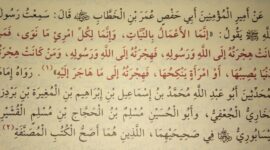 عَنْ أَمِيرِ الْمُؤْمِنِينَ أَبِي حَفْصٍ عُمَرَ بْنِ الْخَطَّابِ ﷺ قَالَ: سَمِعْتُ رَسُولَ
يَقُولُ: «إِنَّمَا الأَعْمَالُ بِالنِّيَّاتِ، وَإِنَّمَا لِكُلِّ امْرِئٍ مَا نَوَى، فَمَنْ
هِجْرَتُهُ إِلَى اللهِ وَرَسُولِهِ، فَهِجْرَتُهُ إِلَى اللهِ وَرَسُولِهِ، وَمَنْ كَانَتْ هِجْرَتُهُ
يُصِيبُهَا، أَوِ امْرَأَةٍ يَنْكِحُهَا، فَهِجْرَتُهُ إِلَى مَا هَاجَرَ إِلَيْهِ»(١). رَوَاهُ إِمَامَا
أَبُو عَبْدِ اللهِ مُحَمَّدُ بْنُ إِسْمَاعِيلَ بْنِ إِبْرَاهِيمَ بْنِ الْمُغِيرَةِ بْنِ بَرْدِزْ
الْجُعْفِيُّ، وَأَبُو الْحُسَيْنِ مُسْلِمُ بْنُ الْحَجَّاجِ بْنِ مُسْلِمٍ الْقُشَيْرِ
فِي صَحِيحَيْهِمَا، اللَّذَيْنِ هُمَا أَصَحُّ الْكُتُبِ الْمُصَنَّفَةِ(٢)